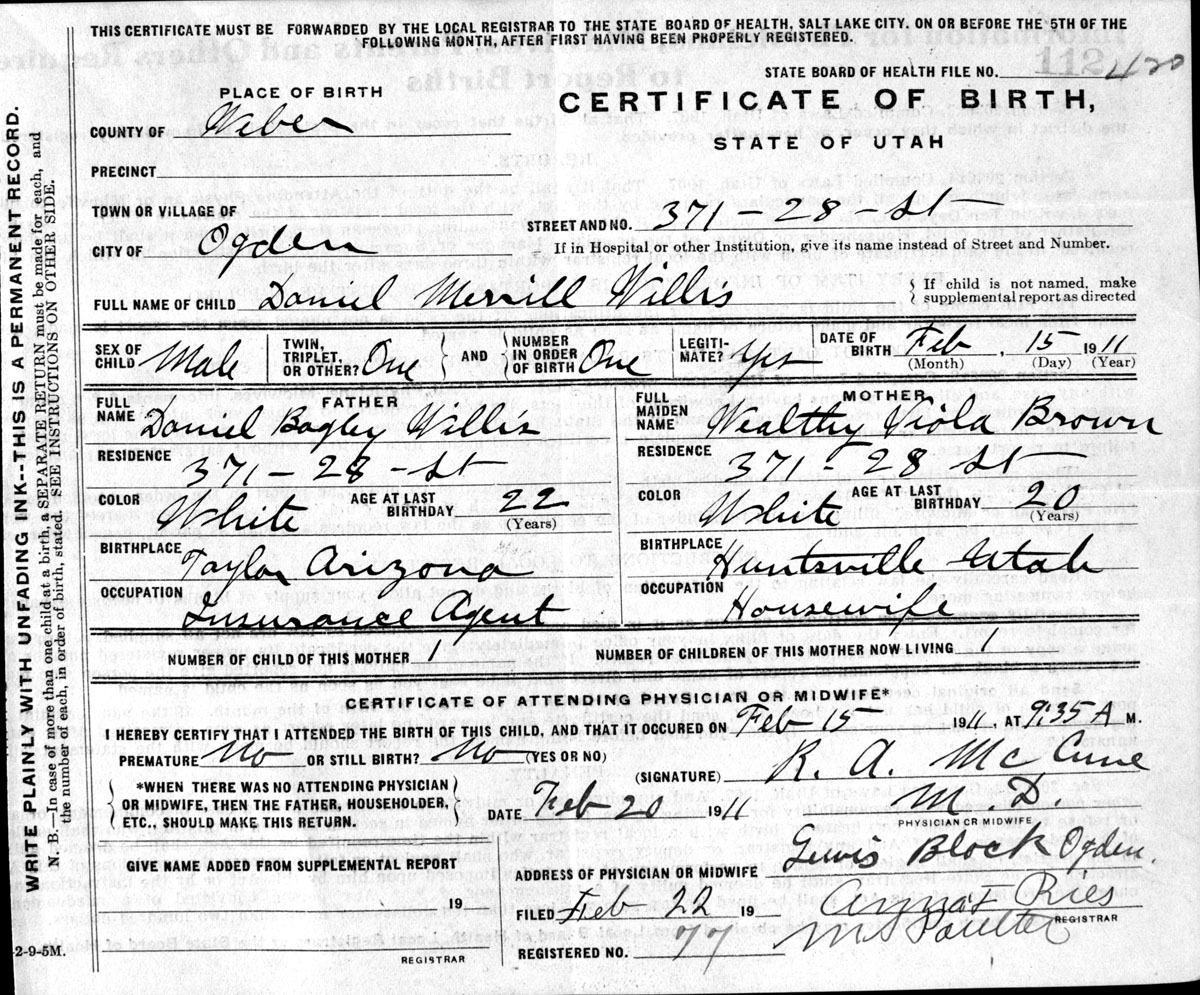 THIS CERTIFICATE MUST BE FORWARDED BY THE LOCAL REGISTRAR TO THE STATE BOARD OF HEALTH, SALT LAKE CITY, ON OR BEFORE THE 5TH OF THE
FOLLOWING MONTH, AFTER FIRST HAVING BEEN PROPERLY REGISTERED.
STATE BOARD OF HEALTH FILE NO. 112 420
PLACE OF BIRTH
CERTIFICATE OF BIRTH,
STATE OF UTAH
COUNTY OF Weber
PRECINCT
TOWN OR VILLAGE OF
CITY OF Ogden
STREET AND NO. 371 - 28 St
If in Hospital or other Institution, give its name instead of Street and Number.
FULL NAME OF CHILD Daniel Merrill Willis { If child is not named, make supplemental report as directed
SEX OF CHILD. Male TWIN, TRIPLET, OR OTHER? One } AND { NUMBER IN ORDER OF BIRTH One LEGITI-MATE? Yes DATE OF BIRTH Feb, 15 1911
(Month) (Day) (Year)
FATHER
FULL NAME Daniel Bagley Willis
RESIDENCE 371 - 28 - St
COLOR White AGE AT LAST BIRTHDAY 22
(Years)
BIRTHPLACE Taylor Arizona
OCCUPATION Insurance Agent
MOTHER
FULL MAIDEN NAME Wealthy Viola Brown
RESIDENCE 371 - 28 St
COLOR White AGE AT LAST BIRTHDAY 20
(Years)
BIRTHPLACE Huntsville Utah
OCCUPATION Housewife
NUMBER OF CHILD OF THIS MOTHER 1 NUMBER OF CHILDREN OF THIS MOTHER NOW LIVING
CERTIFICATE OF ATTENDING PHYSICIAN OR MIDWIFE*
I HEREBY CERTIFY THAT I ATTENDED THE BIRTH OF THIS CHILD, AND THAT IT OCCURED ON Feb 15 1911, AT 9:35 A M.
PREMATURE No OR STILL BIRTH? No (YES OR NO)
(SIGNATURE) R. A. McCune
*WHEN THERE WAS NO ATTENDING PHYSICIAN
OR MIDWIFE, THEN THE FATHER, HOUSEHOLDER,
ETC., SHOULD MAKE THIS RETURN.
DATE Feb 20 1911 M D.
PHYSICIAN OR MIDWIFE
GIVE NAME ADDED FROM SUPPLEMENTAL REPORT
19
REGISTRAR
ADDRESS OF PHYSICIAN OR MIDWIFE Lewis Block Ogden.
FILED Feb 22 19
Ries
REGISTRAR
REGISTERED NO. 77
WRITE PLAINLY WITH UNFADING INK--THIS IS A PERMANENT RECORD.
N. B.—In case of more than one child at a birth, a SEPARATE RETURN must be made for each, and
the number of each, in order of birth, stated. SEE INSTRUCTIONS ON OTHER SIDE.
2-9-5M.